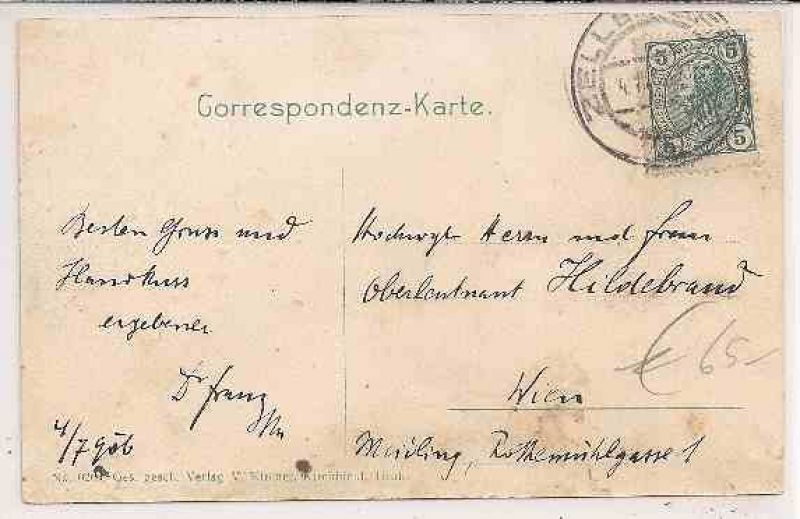 ZELL
5 5
5 5
Correspondenz-Karte.
Besten Gruss und
Handkuss
ergebener
Dr Franz
4/7 906
Hochwgb Herrn und Frau
Oberleutnant Hildebrand
Wien
Meidling, Rothemühlgasse 1
€ 65-
Ges. gesch. Verlag V.